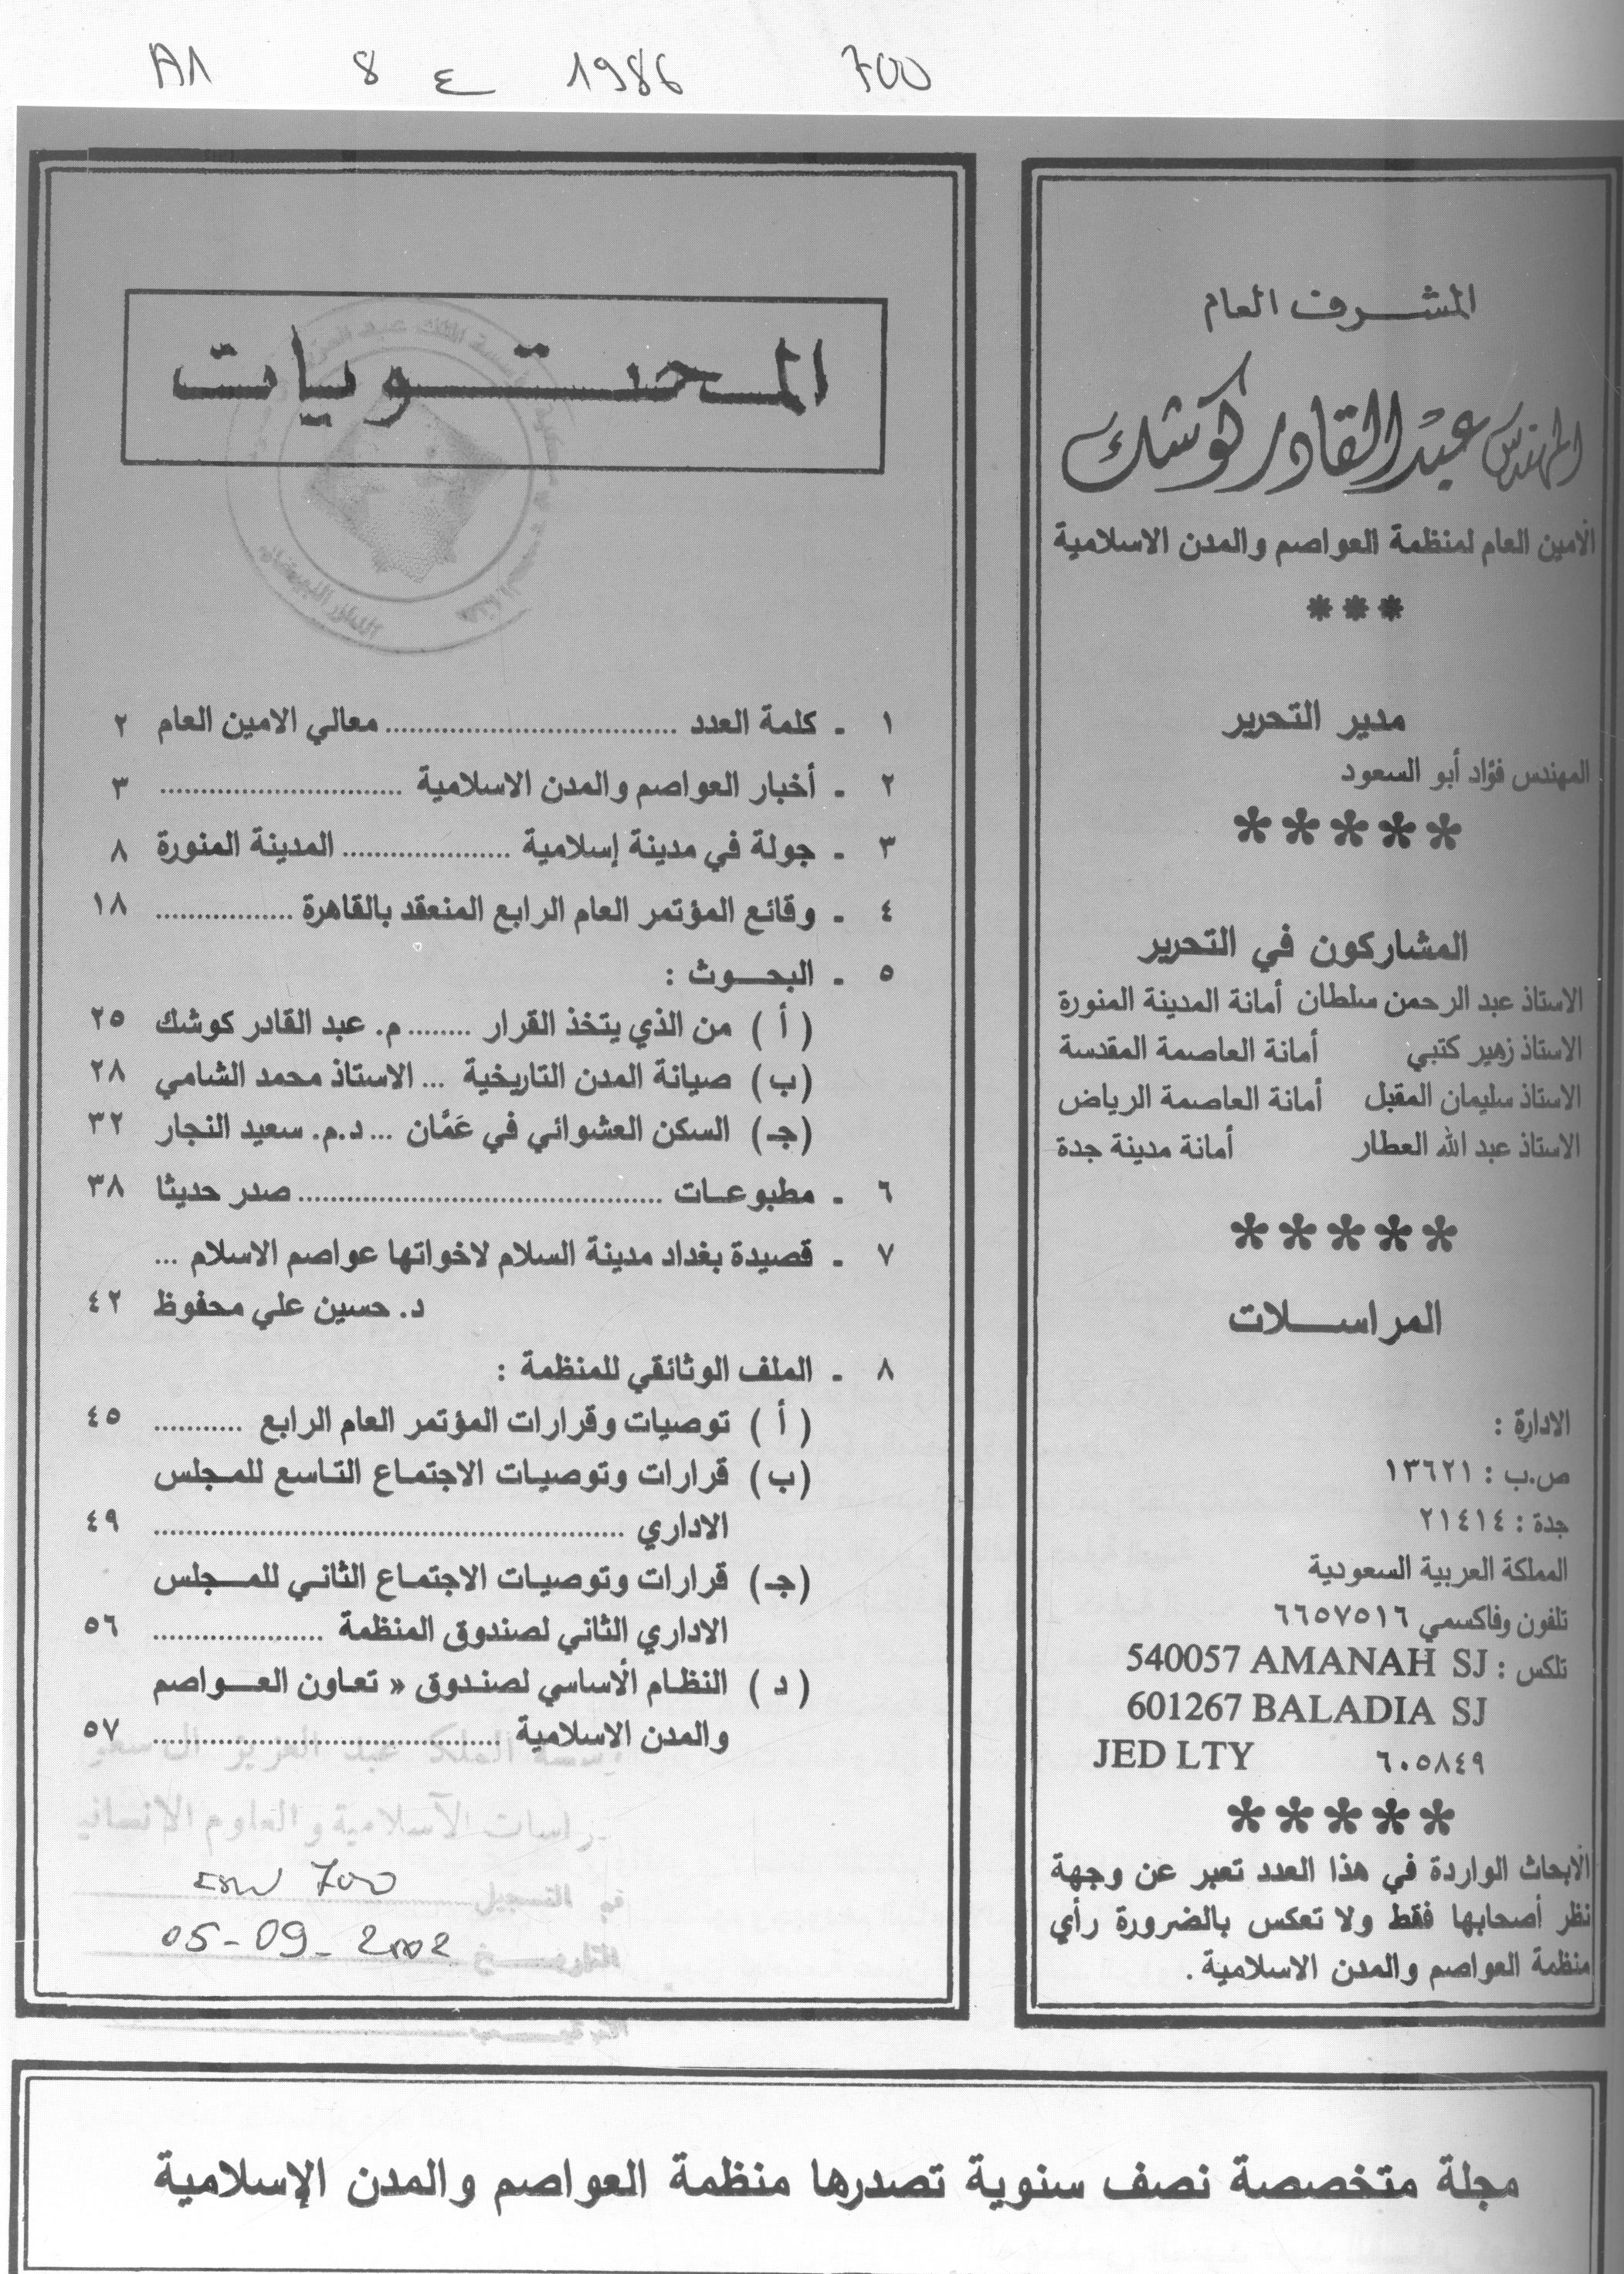 A1 8 ع 1986 700
المشرف العام
المهندس عبد القادر كوشك
الأمين العام لمنظمة العواصم والمدن الاسلامية
***
مدير التحرير
المهندس فؤاد أبو السعود
*****
المشاركون في التحرير
الاستاذ عبد الرحمن سلطان أمانة المدينة المنورة
الاستاذ زهير كتبي أمانة العاصمة المقدسة
الاستاذ سليمان المقبل أمانة العاصمة الرياض
الاستاذ عبد الله العطار أمانة مدينة جدة
*****
المراسلات
الادارة :
ص.ب : ١٣٦٢١
جدة : ٢١٤١٤
المملكة العربية السعودية
تلفون وفاكسمي ٦٦٥٧٥١٦
تلكس : 540057 AMANAH SJ
601267 BALADIA SJ
٦٠٥٨٤٩ JED LTY
*****
الأبحاث الواردة في هذا العدد تعبر عن وجهة
نظر أصحابها فقط ولا تعكس بالضرورة رأي
منظمة العواصم والمدن الاسلامية .
المحتويات
١ - كلمة العدد .................................... معالي الامين العام ٢
٢ - أخبار العواصم والمدن الاسلامية .............................. ٣
٣ - جولة في مدينة إسلامية ..................... المدينة المنورة ٨
٤ - وقائع المؤتمر العام الرابع المنعقد بالقاهرة ................. ١٨
٥ - البحوث :
( أ ) من الذي يتخذ القرار ........ م. عبد القادر كوشك ٢٥
(ب) صيانة المدن التاريخية ... الاستاذ محمد الشامي ٢٨
(جـ) السكن العشوائي في عَمَّان ... د.م. سعيد النجار ٣٢
٦ - مطبوعات ............................................. صدر حديثا ٣٨
٧ - قصيدة بغداد مدينة السلام لاخواتها عواصم الاسلام ...
د. حسين علي محفوظ ٤٢
٨ - الملف الوثائقي للمنظمة :
( أ ) توصيات وقرارات المؤتمر العام الرابع ........... ٤٥
(ب) قرارات وتوصيات الاجتماع التاسع للمجلس
الاداري .......................................................... ٤٩
(جـ) قرارات وتوصيات الاجتماع الثاني للمجلس
الاداري الثاني لصندوق المنظمة ..................... ٥٦
( د ) النظام الأساسي لصندوق « تعاون العواصم
والمدن الاسلامية ........................................... ٥٧
700
05-09-2002
مجلة متخصصة نصف سنوية تصدرها منظمة العواصم والمدن الإسلامية